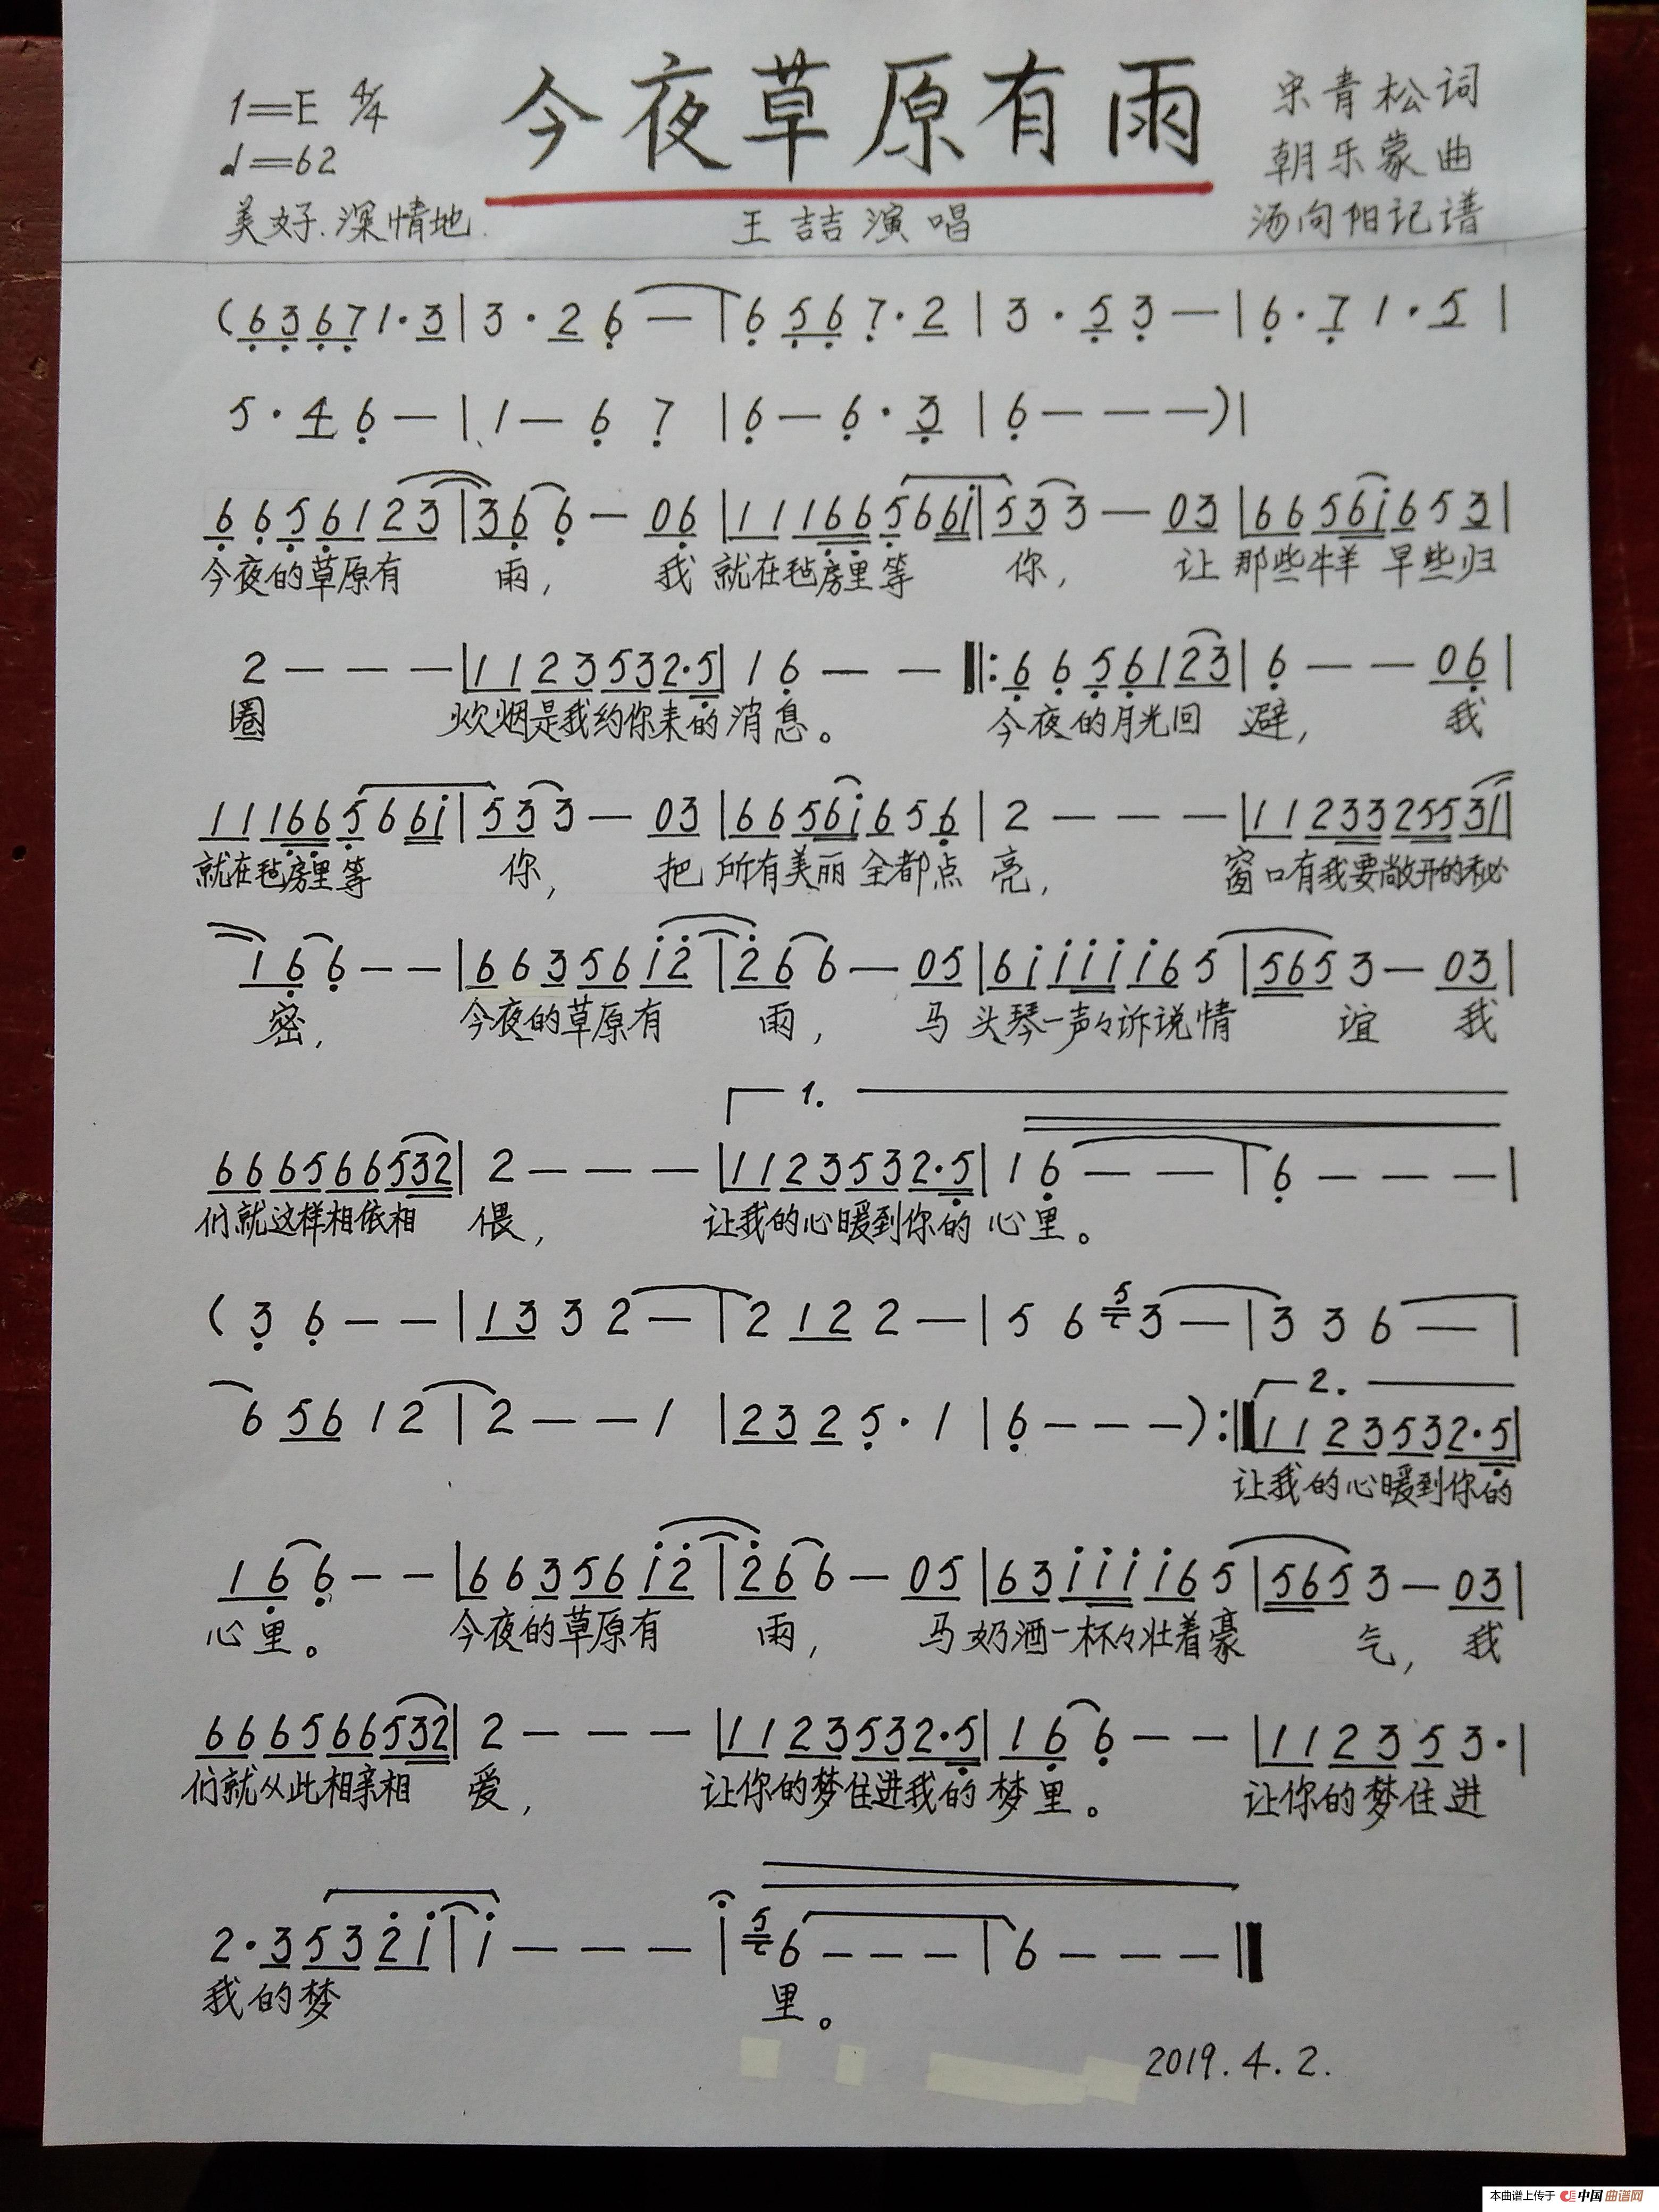 今夜草原有雨
1=E 4/4
♩=62
美好、深情地
王喆演唱
宋青松词
朝乐蒙曲
汤向阳记谱
(6 3 6 7 1·3 | 3·2 6 — | 6 5 6 7·2 | 3·5 3 — | 6·7 1·5 |
5·4 6 — | 1 — 6 7 | 6 — 6·3 | 6 — — —)|
6 6 5 6 1 2 3 | 3 6 6 — 0 6 | 1 1 1 6 6 5 6 6 i | 5 3 3 — 0 3 | 6 6 5 6 i 6 5 3 |
今夜的草原有 雨, 我 就在毡房里等 你, 让 那些牛羊 早些归
2 — — — | 1 1 2 3 5 3 2·5 | 1 6 — — ‖: 6 6 5 6 1 2 3 | 6 — — 0 6 |
圈 炊烟是我约你来的 消息。 今夜的月光回 避, 我
1 1 1 6 6 5 6 6 i | 5 3 3 — 0 3 | 6 6 5 6 i 6 5 6 | 2 — — — | 1 1 2 3 3 2 5 5 3 1 |
就在毡房里等 你, 把 所有美丽 全都点 亮, 窗口有我要敞开的秘
1 6 6 — — | 6 6 3 5 6 i 2 | 2 6 6 — 0 5 | 6 i i i i i 6 5 | 5 6 5 3 — 0 3 |
密, 今夜的草原有 雨, 马 头琴一声々诉说情 谊 我
1.
6 6 6 5 6 6 5 3 2 | 2 — — — | 1 1 2 3 5 3 2·5 | 1 6 — — | 6 — — — |
们就这样相依相 偎, 让我的心暖到你的 心里。
(3 6 — — | 1 3 3 2 — | 2 1 2 2 — | 5 6 5 3 — | 3 3 6 — |
2.
6 5 6 1 2 | 2 — — 1 | 2 3 2 5·1 | 6 — — —) :‖ 1 1 2 3 5 3 2·5 |
让我的心暖到你的
1 6 6 — — | 6 6 3 5 6 i 2 | 2 6 6 — 0 5 | 6 3 i i i i 6 5 | 5 6 5 3 — 0 3 |
心里。 今夜的草原有 雨, 马奶酒一杯々壮着豪 气, 我
6 6 6 5 6 6 5 3 2 | 2 — — — | 1 1 2 3 5 3 2·5 | 1 6 6 — — | 1 1 2 3 5 3· |
们就从此相亲相 爱, 让你的梦住进我的 梦里。 让你的梦住进
2·3 5 3 2 i | i — — — | 5 6 — — — | 6 — — — ‖
我的梦 里。
2019.4.2.
本曲谱上传于 中国曲谱网